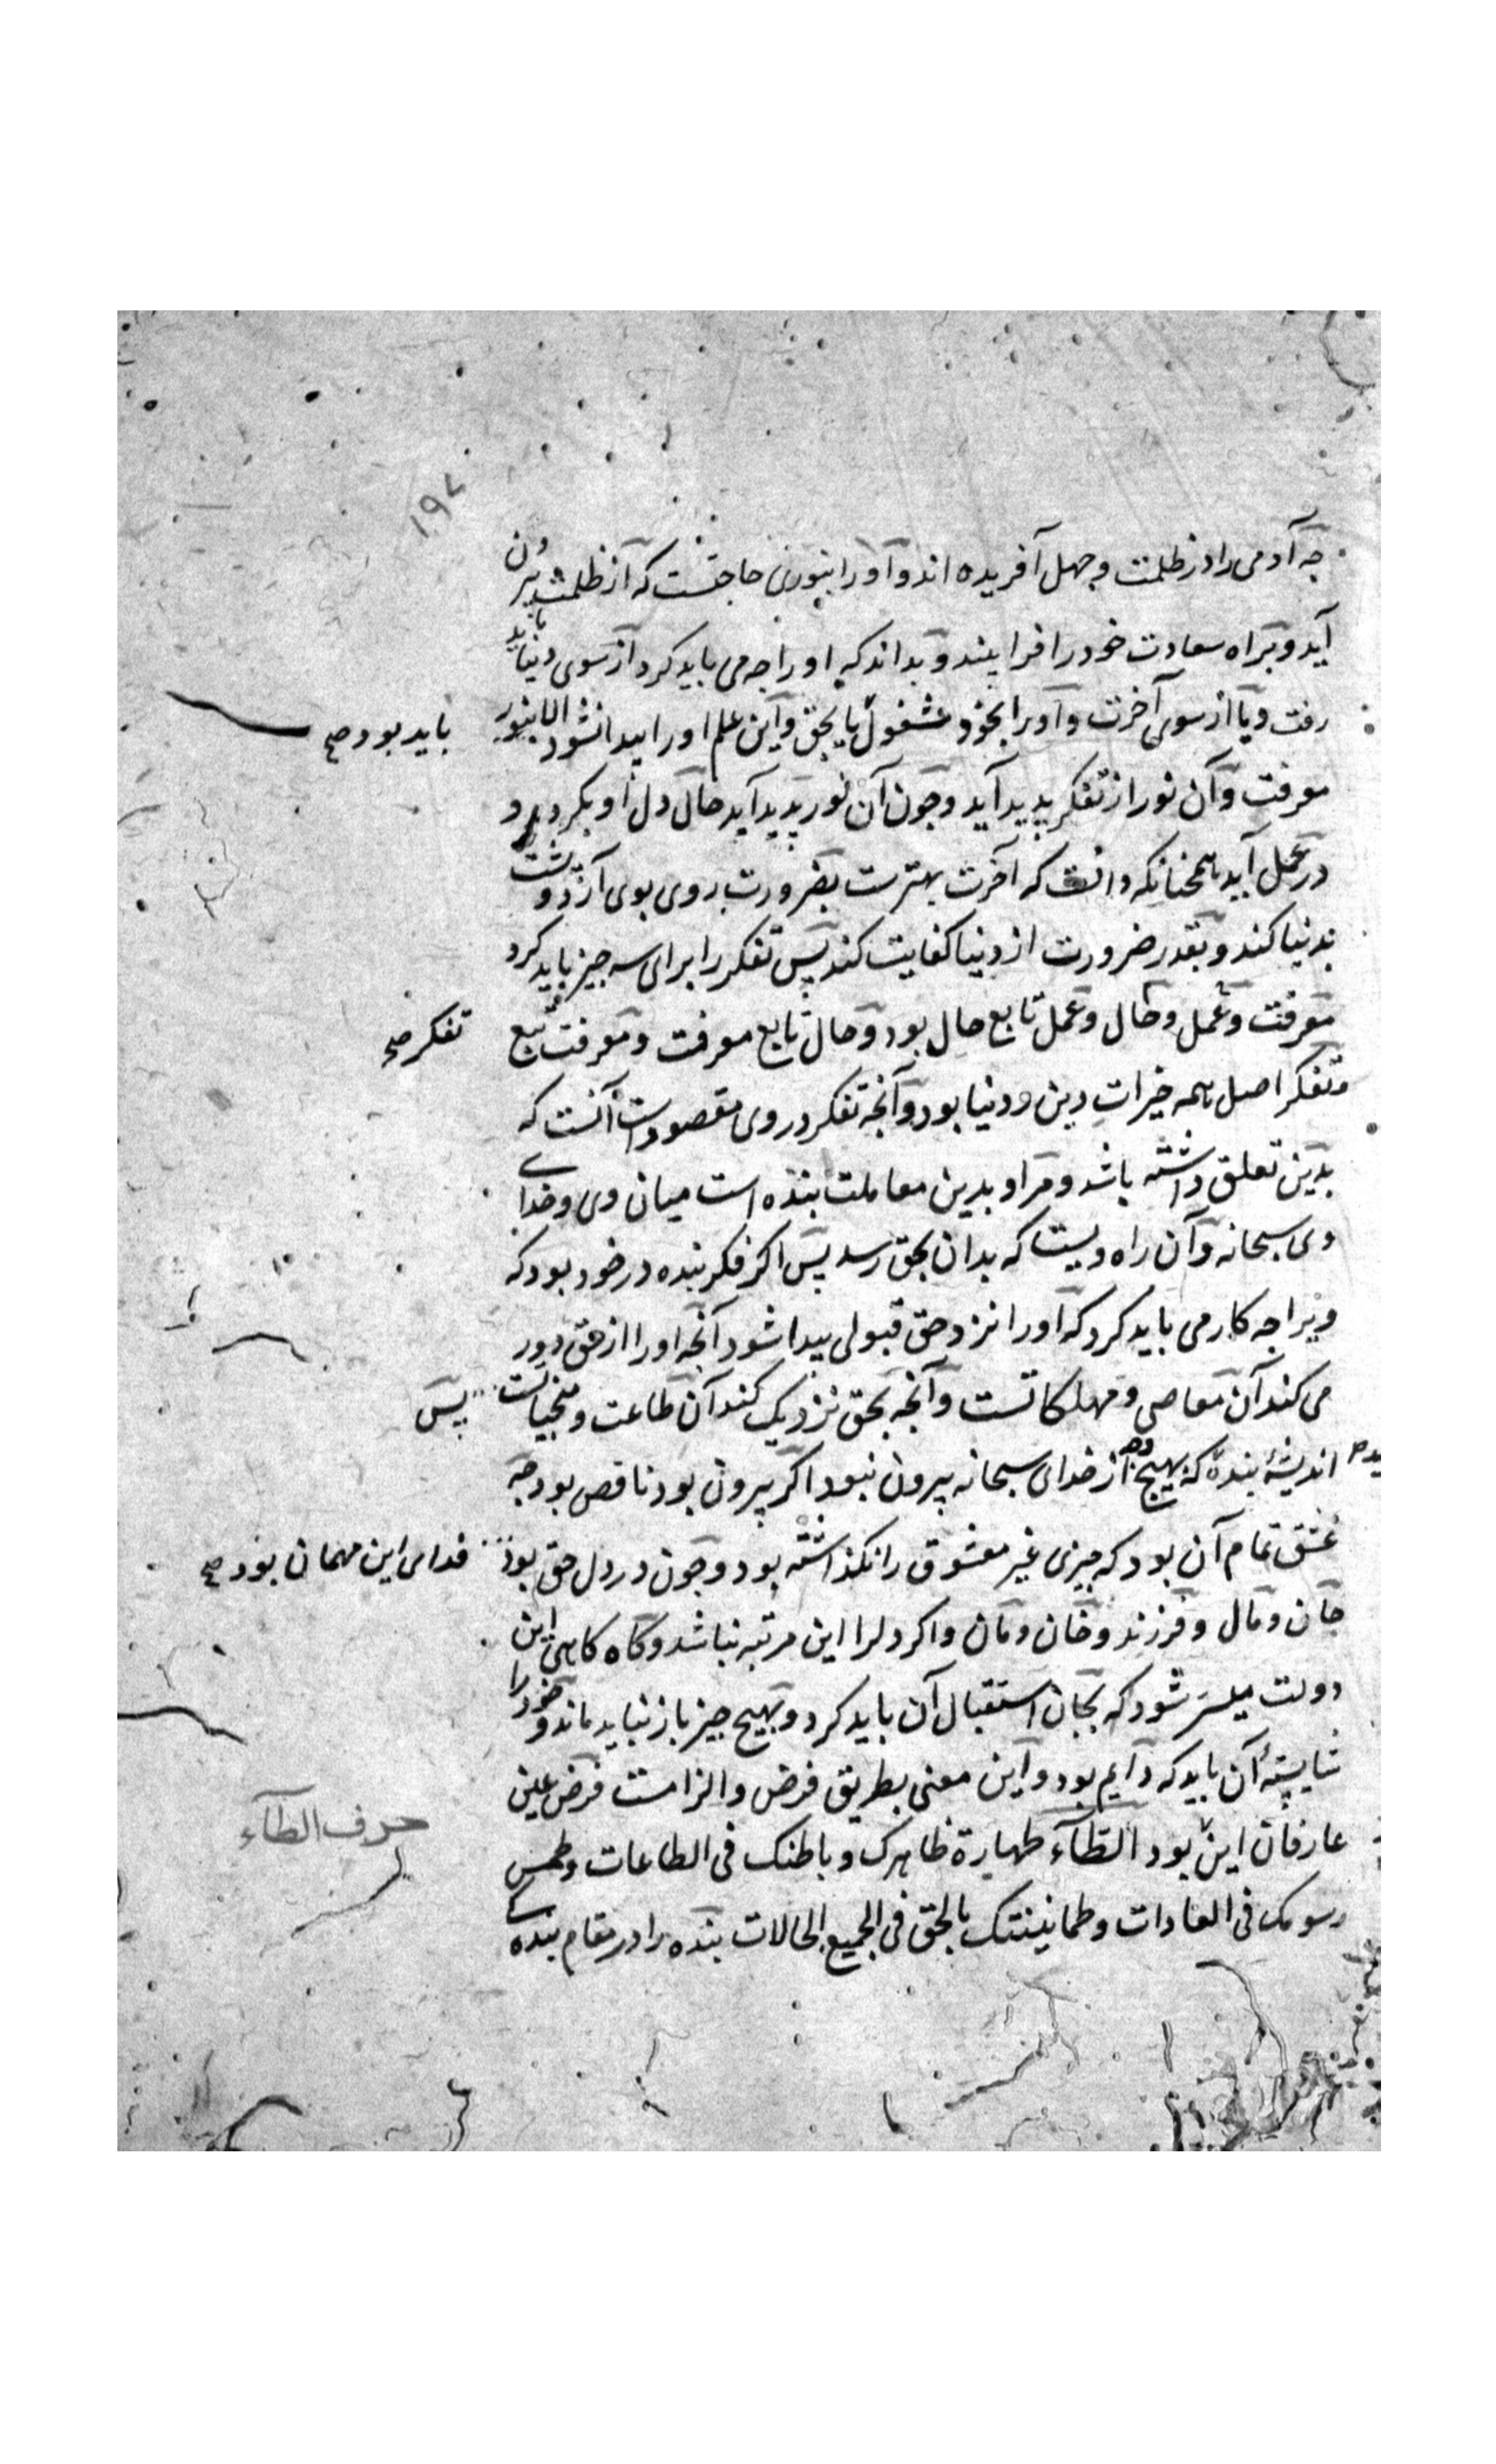 ۱۹۷
جه آدمی را در ظلمت و جهل آفریده اند و او را بنوری حاجتست که از ظلمت بیرون
آید و براه سعادت خود را فرا بیند و بداند که او را جه می باید کرد از سوی دنیا باید
رفت و یا از سوی آخرت و او را بخود مشغول یا بحق و این علم او را بیدا نشود الا بنور
باید بود صح
معرفت و آن نور از تفکر پدید آید و جون آن نور پدید آید حال دل او بکردد و
در عمل آید همجنانکه دانست که آخرت بهترست بضرورت روی بوی آرد و بشت
بدنیا کند و بقدر ضرورت از دنیا کفایت کند پس تفکر را برای سه جیز باید کرد
معرفت و عمل و حال و عمل تابع حال بود و حال تابع معرفت و معرفت تبع
تفکر صح
و تفکر اصل همه خیرات دین و دنیا بود و آنجه تفکر در وی مقصودست آنست که
بدین تعلق داشته باشد و مراد بدین معاملت بنده است میان وی و خدای
وی سبحانه و آن راه ویست که بدان بحق رسد پس اکر فکر بنده در خود بود که
ویرا جه کار می باید کرد که او را نزد حق قبولی بیدا شود آنجه او را از حق دور
می کند آن معاصی و مهلکاتست و آنجه بحق نزدیک کند آن طاعت و منجیاتست پس
اندیشهٔ بنده که بهیج وجه از خدای سبحانه بیرون نبود اکر بیرون بود ناقص بود جه
عشق تمام آن بود که جیزی غیر معشوق را نکذاشته بود و جون در دل حق بود
فدای این مهمان بود صح
جان و مال و فرزند و خان و مان و اکر دلرا این مرتبه نباشد و کاه کاهی این
دولت میسر شود که بجان استقبال آن باید کرد و بهیج جیز باز نباید ماند و خود را
شایستهٔ آن باید که دایم بود و این معنی بطریق فرض و الزامست فرض عین
عارفان این بود الطآء طهارة ظاهرک و باطنک فی الطاعات و طمس
حرف الطآء
رسومک فی العادات و طمانینتک بالحق فی الجمیع الحالات بنده را در مقام بندکی